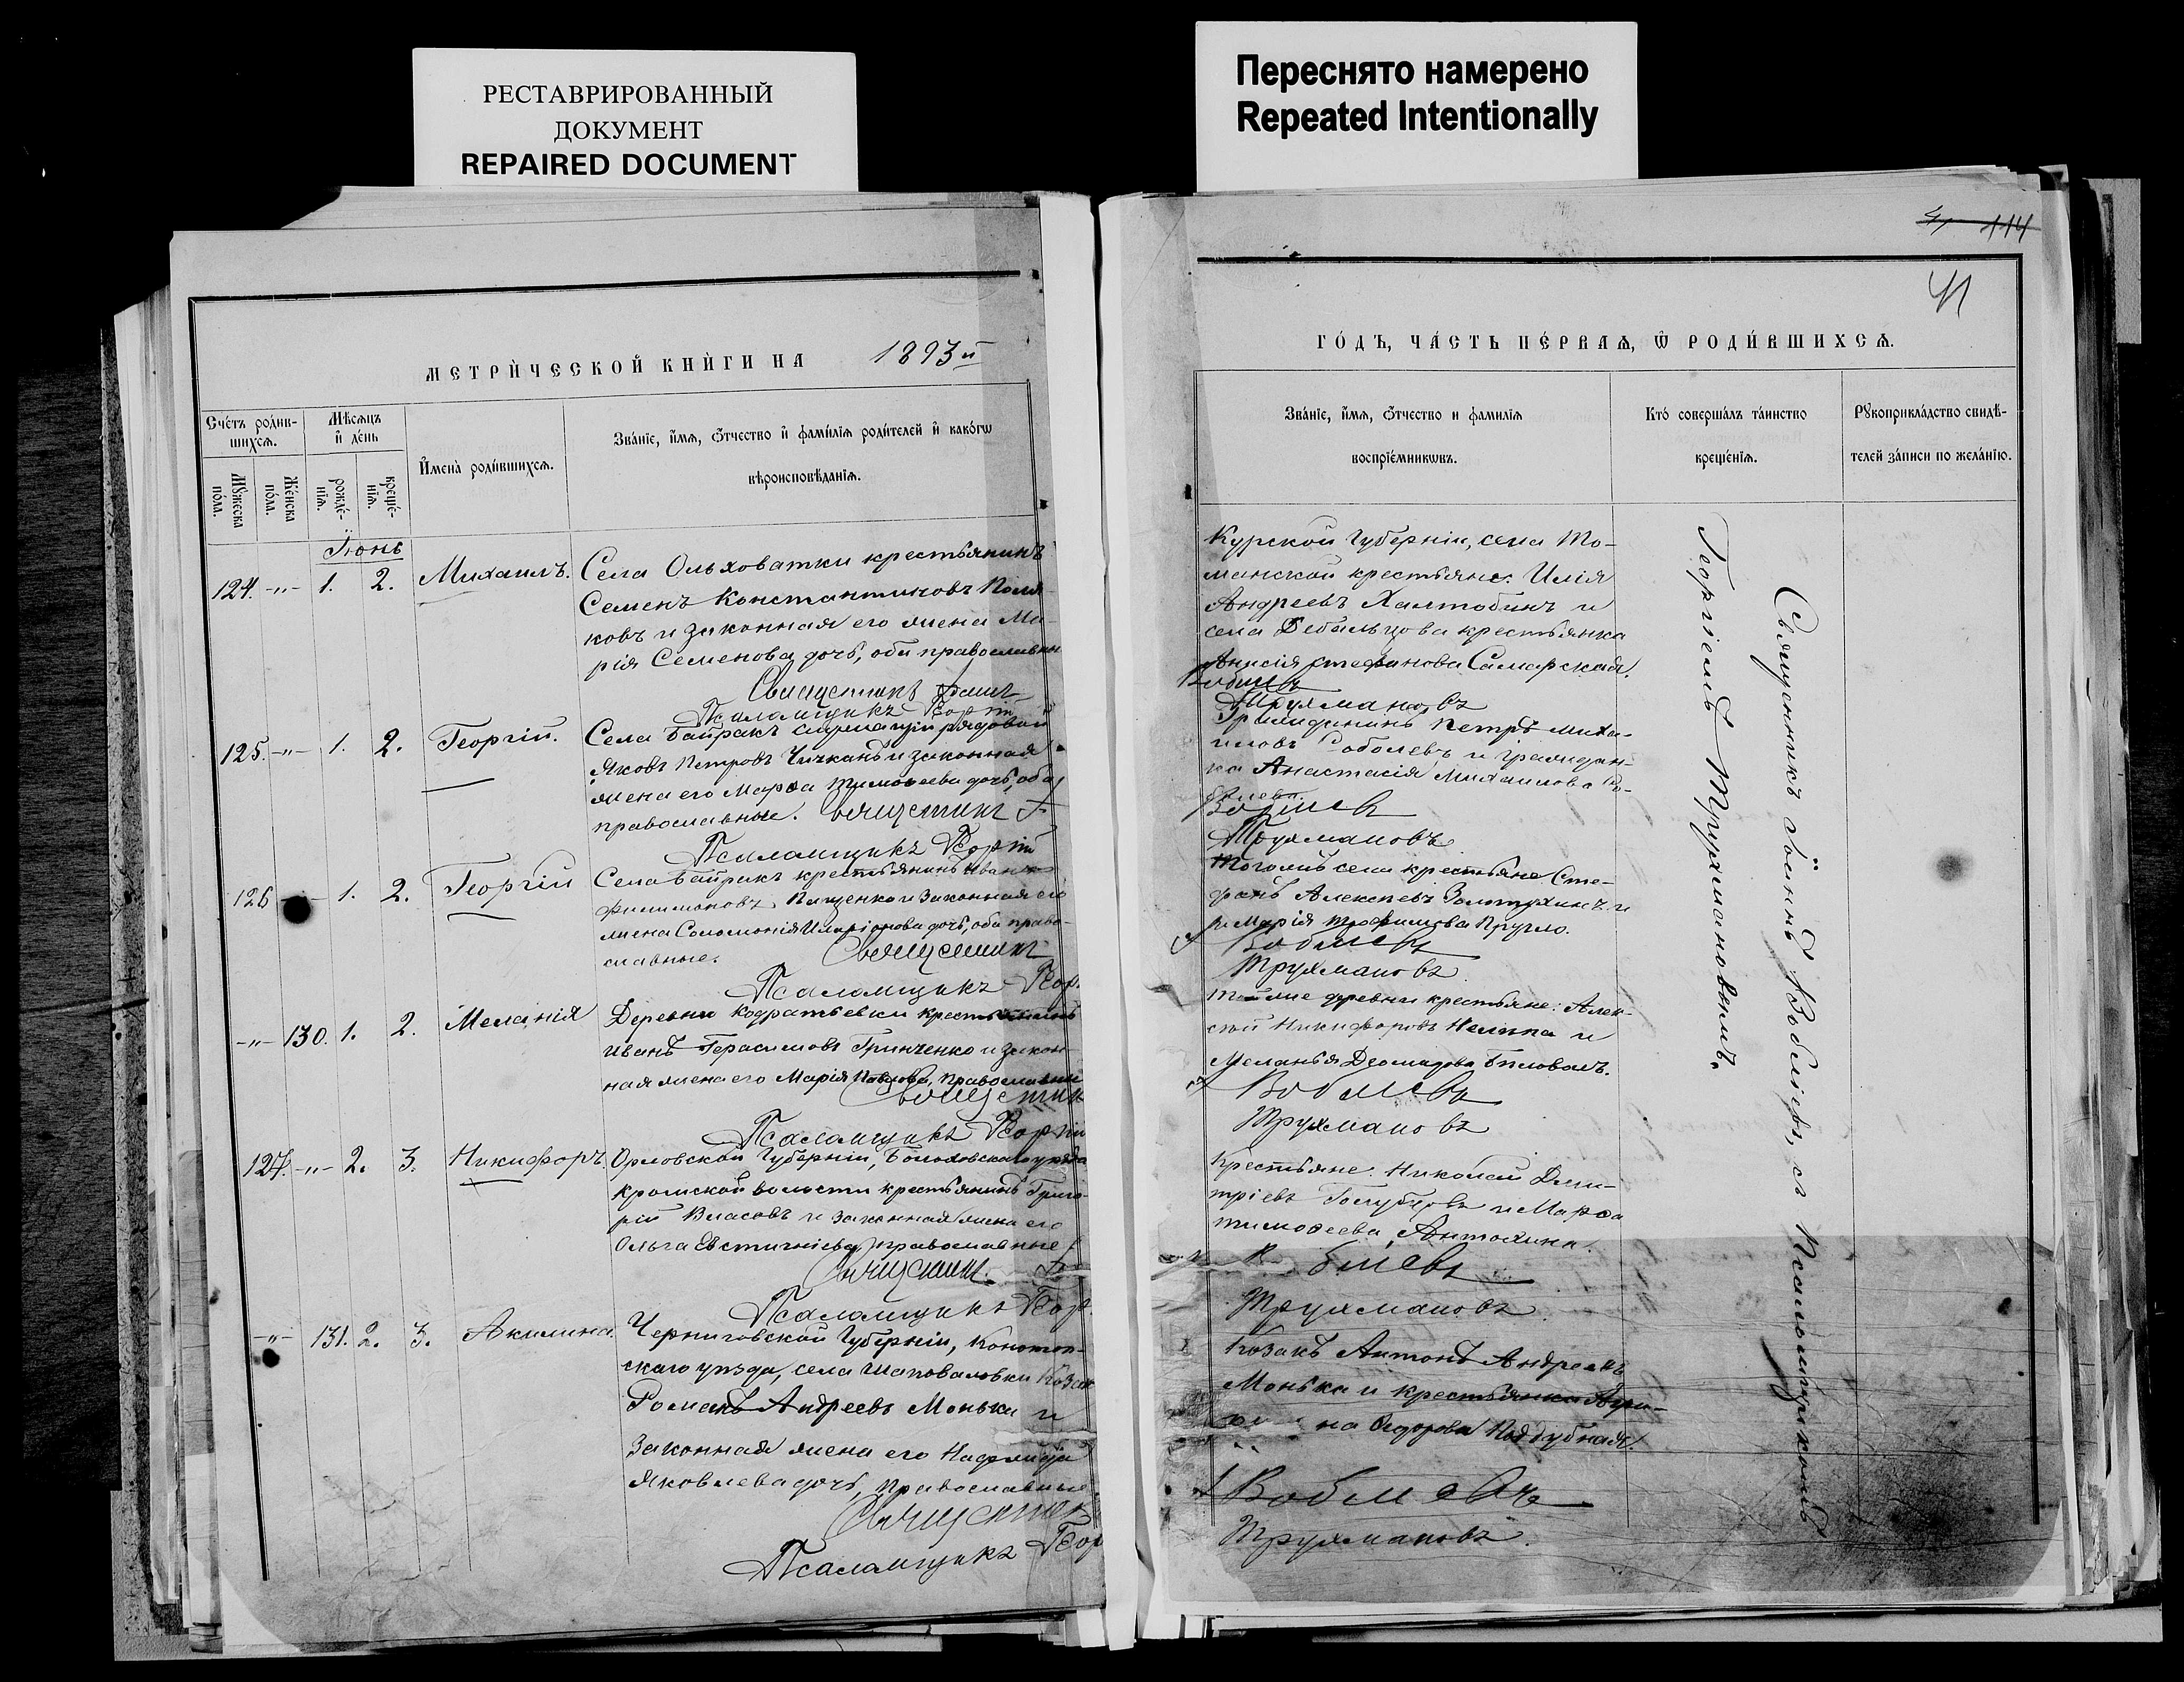 РЕСТАВРИРОВАННЫЙ
ДОКУМЕНТ
REPAIRED DOCUMENT
Переснято намерено
Repeated Intentionally
114
41
МЕТРИ́ЧЕСКОЙ КНИ́ГИ НА 1893й
Сче́тъ роди́в-
шихсѧ.
Мꙋ́жеска по́ла.
Же́нска по́ла.
Мѣ́сѧцъ
и҆ де́нь
рожде́-
нїѧ.
креще́-
нїѧ.
И҆мена̀ роди́вшихсѧ.
Зва́нїе, и҆́мѧ, ѻ҆́тчество и҆ фамі́лїѧ роди́телей и҆ како́гѡ
вѣроисповѣ́данїѧ.
Іюнь
124. -"- 1. 2. Михаилъ.
Села Ольховатки крестьянинъ
Семенъ Константиновъ Поля-
ковъ и законная его жена Ма-
рія Семенова дочь, оба православны
Священникъ
Псаломщикъ Георгій
125. -"- 1. 2. Георгій.
Села Байракъ рядовой
Яковъ Петровъ Чичканъ и законная
жена его Марѳа Тимоѳеева дочь, оба
православные. Священникъ
Псаломщикъ Георгій
126 - 1. 2. Георгій
Села Байракъ крестьянинъ Иванъ
Филимоновъ Пащенко и законная его
жена Соломонія Иларіонова дочь, оба право-
славные. Священникъ
Псаломщикъ Геор.
-"- 130. 1. 2. Меланія
Деревни Кодратьевки крестьянинъ
Иванъ Герасимовъ Гринченко и закон-
ная жена его Марія Павлова, православны
Священник
Псаломщикъ Георгій
127. -"- 2. 3. Никифоръ.
Орловской Губерніи, Болховскаго уѣзда
Кромской волости крестьянинъ Григо-
рій Власовъ и законная жена его
Ольга Евстигніева, православные
Священник.
Псаломщикъ Геор.
-"- 131. 2. 3. Акилина.
Черниговской Губерніи, Конотоп-
скаго уѣзда, села Шаповаловки Козак
Романъ Андреевъ Монька и
законная жена его Надежда
Яковлева дочь, православные.
Священник
Псаломщикъ Геор
ГО́ДЪ, ЧА́СТЬ ПЕ́РВАѦ, Ѡ҆ РОДИ́ВШИХСѦ.
Зва́нїе, и҆́мѧ, ѻ҆́тчество и фамилїѧ
воспрїе́мникѡвъ.
Кто́ соверша́лъ та́инство
креще́нїѧ.
Рꙋкоприкла́дство свидѣ́-
телей за́писи по жела́нїю.
Курской Губерніи, села То-
манской крестьяне: Илія
Андреевъ Халтобинъ и
села Дебальцова крестьянка
Анисія Стефанова Самарская.
Воблiевъ
Трухмановъ
Гражданинъ Петръ Миха-
иловъ Соболевъ и граждан-
ка Анастасія Михаилова Со-
болева.
Воблiевъ
Трухмановъ
Тогожъ села крестьяне Сте-
фанъ Алексеевъ Золотухинъ и
Марія Трофимова Кругло.
Воблiевъ
Трухмановъ
Тойже деревни крестьяне: Алек-
сѣй Никифоровъ и
Меланья Деомидова Биловолъ.
Воблiевъ
Трухмановъ
Крестьяне: Николай Дми-
тріевъ Голубцовъ и Марѳа
Тимоѳеева Антохина.
Воблiевъ
Трухмановъ
Козакъ Антонъ Андреевъ
Монька и крестьянка Аг
на Сидорова Поддубная.
Воблiевъ
Трухмановъ.
Священникъ Іоаннъ Воблiевъ, съ Псаломщикомъ
Георгіемъ Трухмановымъ.